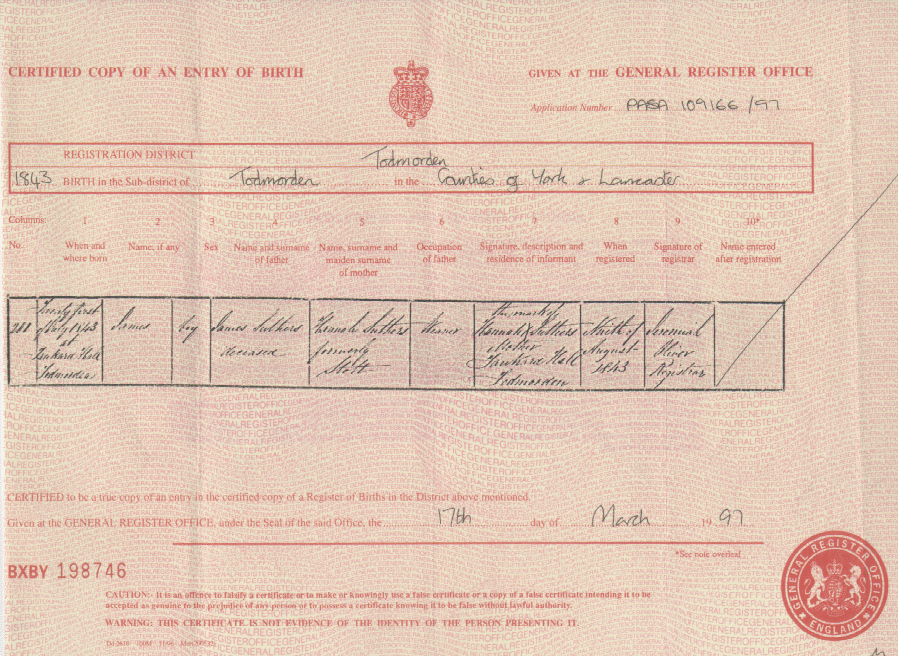 CERTIFIED COPY OF AN ENTRY OF BIRTH
GIVEN AT THE GENERAL REGISTER OFFICE
Application Number PASA 109166/97
REGISTRATION DISTRICT Todmorden
1843 BIRTH in the Sub-district of Todmorden in the Counties of York & Lancaster
Columns: 1 2 3 4 5 6 7 8 9 10*
No. When and where born Name, if any Sex Name and surname of father Name, surname and maiden surname of mother Occupation of father Signature, description and residence of informant When registered Signature of registrar Name entered after registration
Twenty first
May 1843
at
Hall
Todmorden
James
boy
James Suthers
deceased
Hannah Suthers
formerly
Stott
Weaver
the mark of
Hannah X Suthers
Mother
Hall
Todmorden
Ninth of
August
1843
Jeremiah
Oliver
Registrar
CERTIFIED to be a true copy of an entry in the certified copy of a Register of Births in the District above mentioned.
Given at the GENERAL REGISTER OFFICE, under the Seal of the said Office, the 17th day of March 19 97
*See note overleaf
BXBY 198746
CAUTION:- It is an offence to falsify a certificate or to make or knowingly use a false certificate or a copy of a false certificate intending it to be
accepted as genuine to the prejudice of any person or to possess a certificate knowing it to be false without lawful authority.
WARNING: THIS CERTIFICATE IS NOT EVIDENCE OF THE IDENTITY OF THE PERSON PRESENTING IT.
GENERAL REGISTER OFFICE
ENGLAND